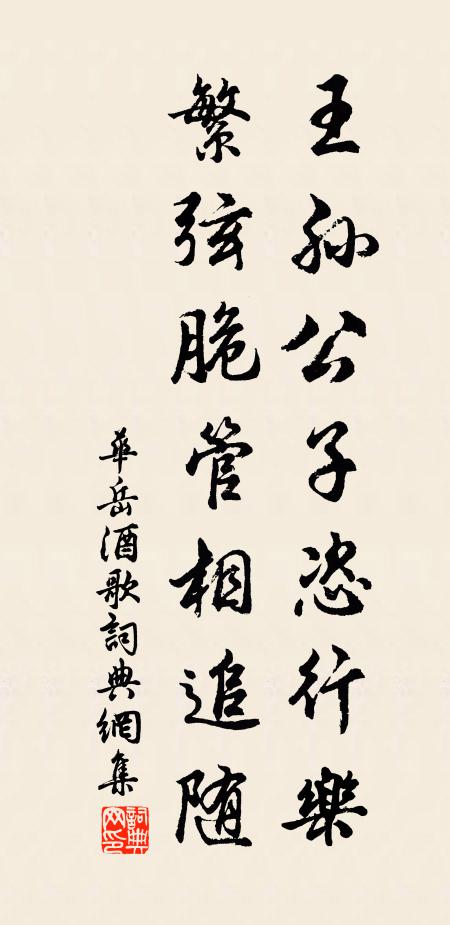 王孙公子恣行樂
繁弦脆管相追随
華岳酒歌詞典網集
詞典網印